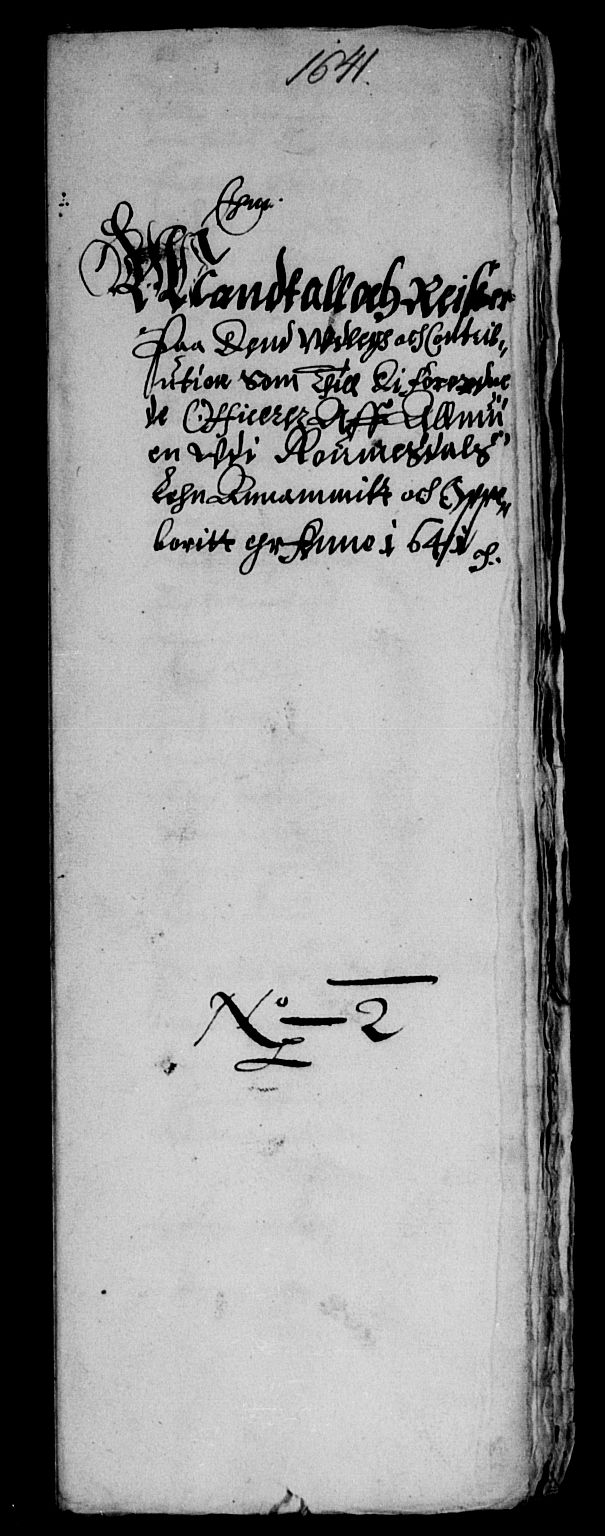 1641.
Mandtall och Reister
Paa Dend Udlegs och Contrib„
ution som Till di forordne
de Officerer Aff Allmu
en udi Roumsdals
Lehn Annammitt och Oppe„
boritt ehr Anno 1641
No 2